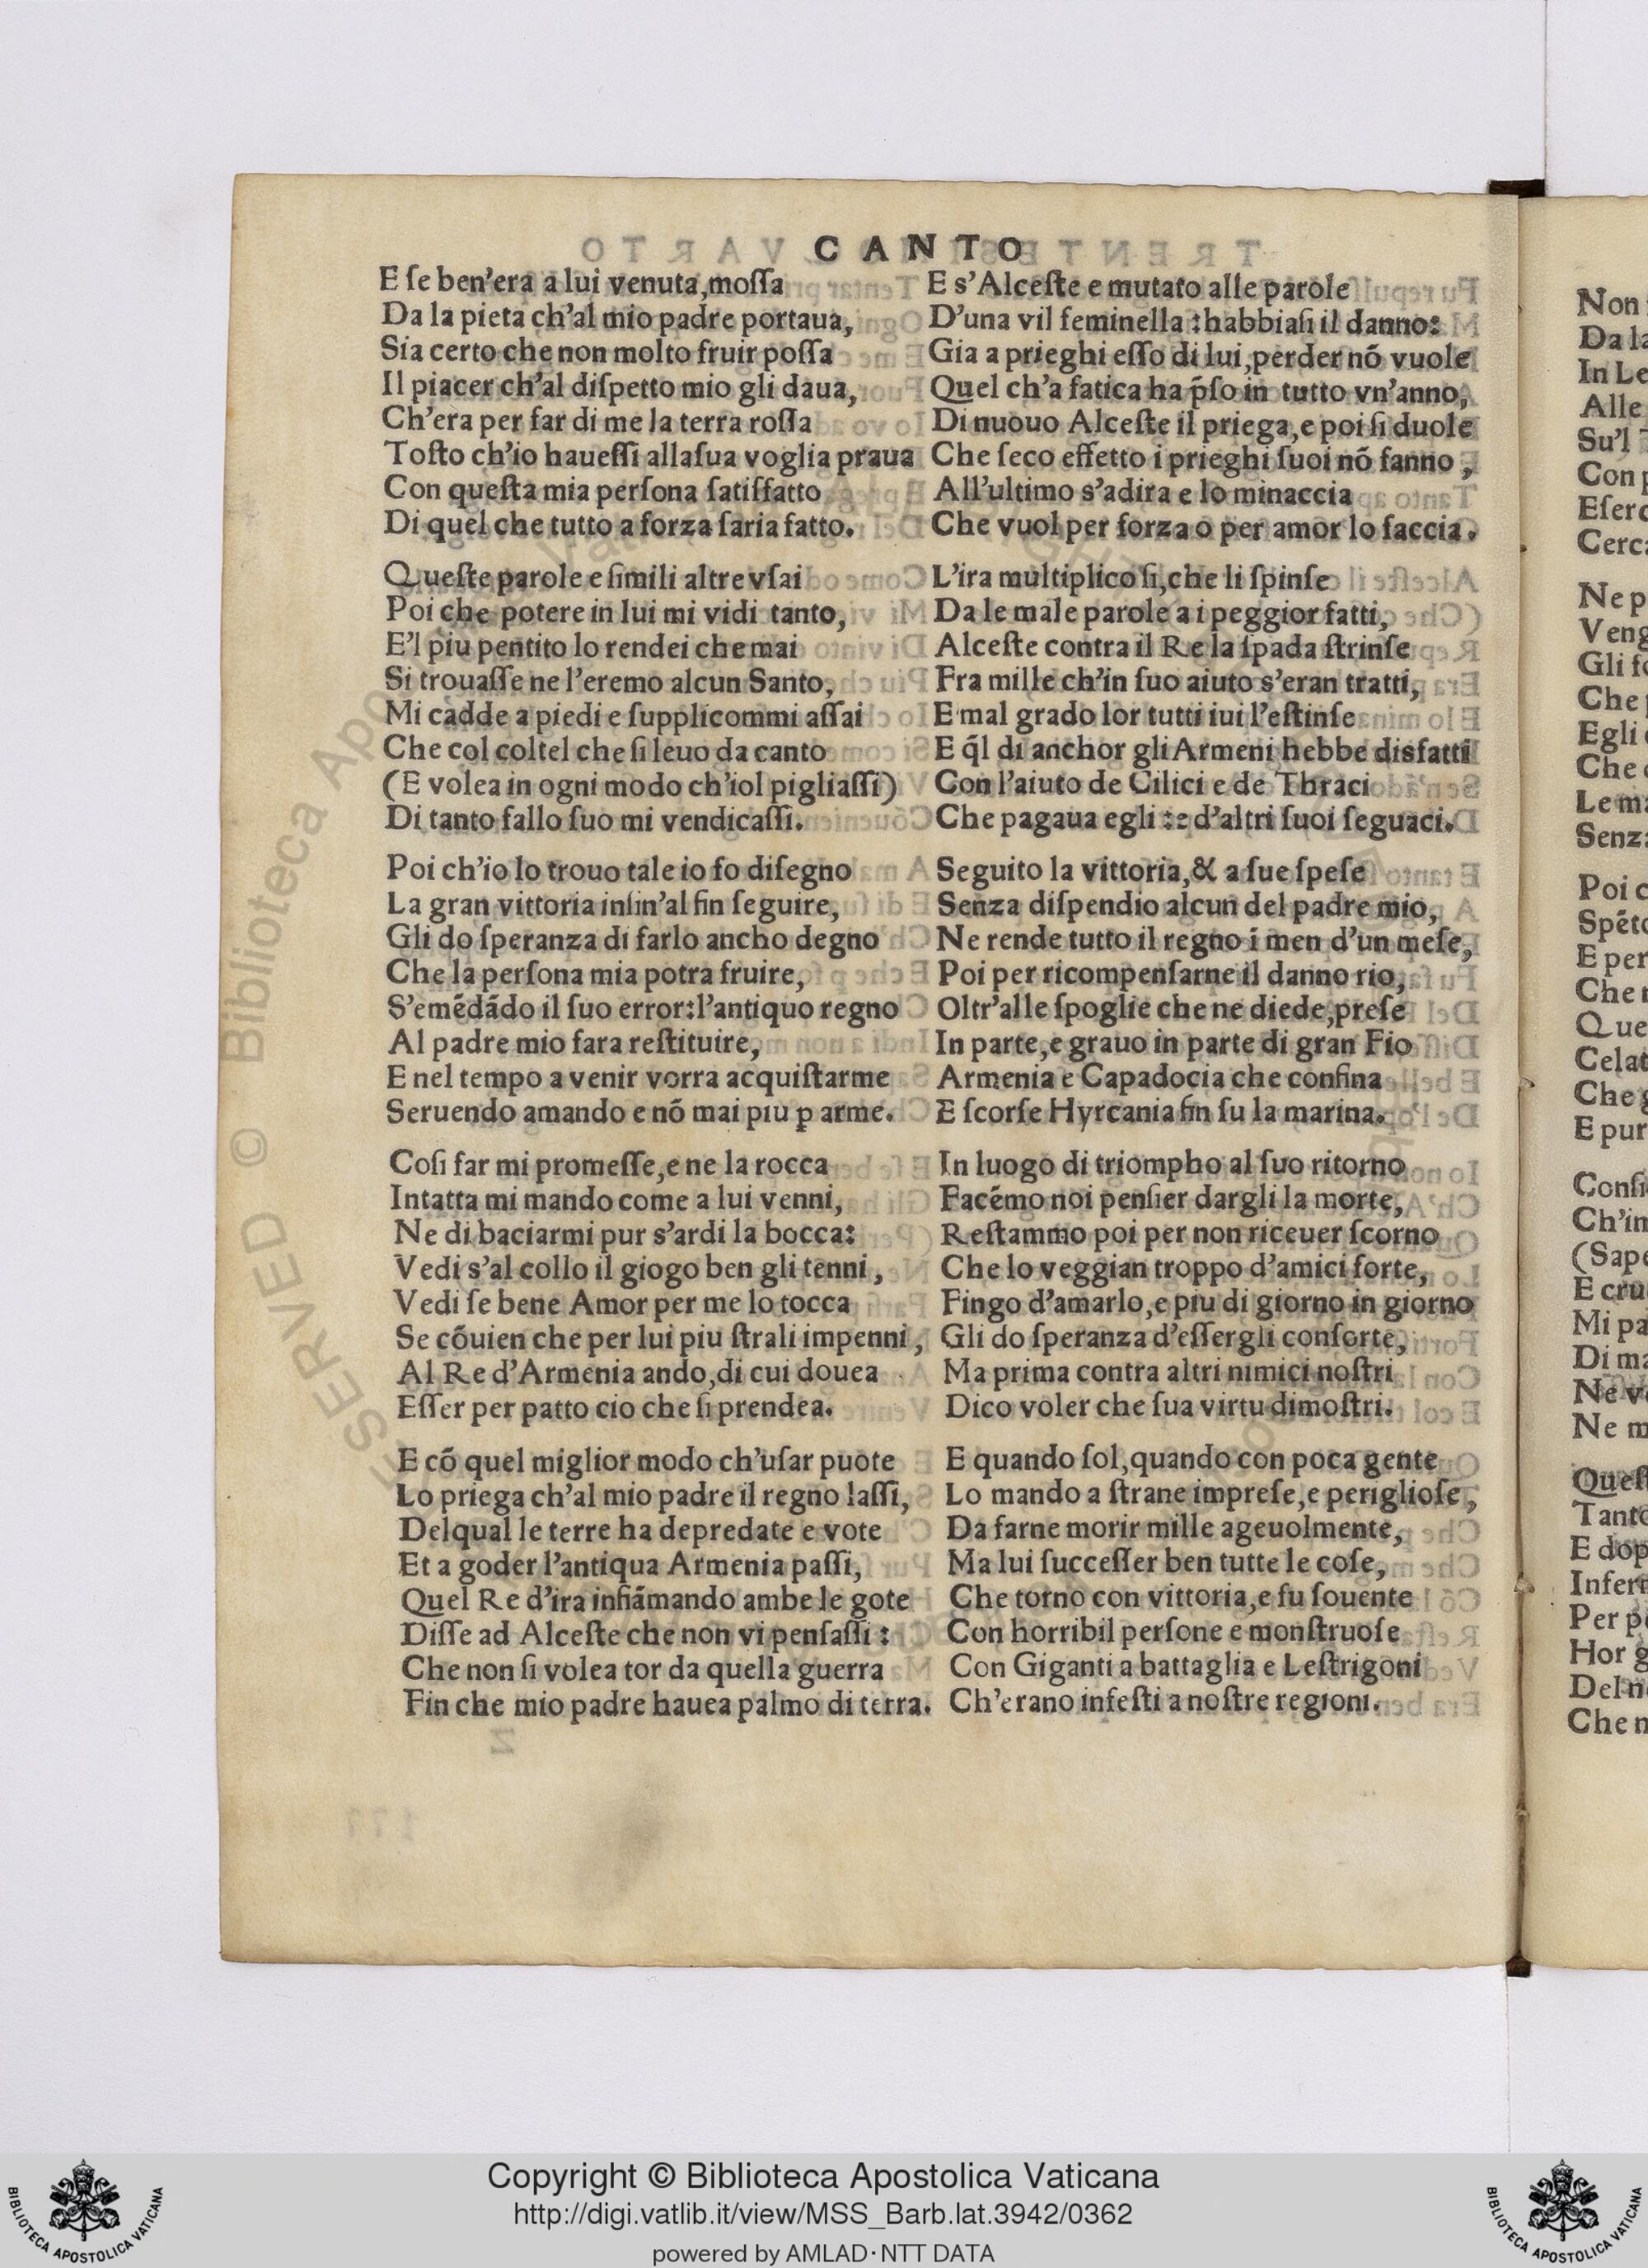 CANTO
E ſe ben'era a lui venuta,moſſa
Da la pieta ch'al mio padre portaua,
Sia certo che non molto fruir poſſa
Il piacer ch'al diſpetto mio gli daua,
Ch'era per far di me la terra roſſa
Toſto ch'io haueſſi allaſua voglia praua
Con queſta mia perſona ſatiſfatto
Di quel che tutto a forza ſaria fatto.
Queſte parole e ſimili altre vſai
Poi che potere in lui mi vidi tanto,
E'l piu pentito lo rendei che mai
Si trouaſſe ne l'eremo alcun Santo,
Mi cadde a piedi e ſupplicommi aſſai
Che col coltel che ſi leuo da canto
(E volea in ogni modo ch'iol pigliaſſi)
Di tanto fallo ſuo mi vendicaſſi.
Poi ch'io lo trouo tale io fo diſegno
La gran vittoria inſin'al fin ſeguire,
Gli do ſperanza di farlo ancho degno
Che la perſona mia potra fruire,
S'emēdādo il ſuo error:l'antiquo regno
Al padre mio fara reſtituire,
E nel tempo a venir vorra acquiſtarme
Seruendo amando e nō mai piu ꝑ arme.
Coſi far mi promeſſe,e ne la rocca
Intatta mi mando come a lui venni,
Ne di baciarmi pur s'ardi la bocca:
Vedi s'al collo il giogo ben gli tenni,
Vedi ſe bene Amor per me lo tocca
Se cōuien che per lui piu ſtrali impenni,
Al Re d'Armenia ando,di cui douea
Eſſer per patto cio che ſi prendea.
E cō quel miglior modo ch'uſar puote
Lo priega ch'al mio padre il regno laſſi,
Delqual le terre ha depredate e vote
Et a goder l'antiqua Armenia paſſi,
Quel Re d'ira infiāmando ambe le gote
Diſſe ad Alceſte che non vi penſaſſi:
Che non ſi volea tor da quella guerra
Fin che mio padre hauea palmo di terra.
E s'Alceſte e mutato alle parole
D'una vil feminella:habbiaſi il danno:
Gia a prieghi eſſo di lui,perder nō vuole
Quel ch'a fatica ha p̄ſo in tutto vn'anno,
Di nuouo Alceſte il priega,e poi ſi duole
Che ſeco effetto i prieghi ſuoi nō fanno,
All'ultimo s'adira e lo minaccia
Che vuol per forza o per amor lo faccia.
L'ira multiplico ſi,che li ſpinſe
Da le male parole a i peggior fatti,
Alceſte contra il Re la ſpada ſtrinſe
Fra mille ch'in ſuo aiuto s'eran tratti,
E mal grado lor tutti iui l'eſtinſe
E q̄l di anchor gli Armeni hebbe disfatti
Con l'aiuto de Cilici e de Thraci
Che pagaua egli:e d'altri ſuoi ſeguaci.
Seguito la vittoria,& a ſue ſpeſe
Senza diſpendio alcun del padre mio,
Ne rende tutto il regno ī men d'un meſe,
Poi per ricompenſarne il danno rio,
Oltr'alle ſpoglie che ne diede,preſe
In parte,e grauo in parte di gran Fio
Armenia e Capadocia che confina
E ſcorſe Hyrcania fin ſu la marina.
In luogo di triompho al ſuo ritorno
Facēmo noi penſier dargli la morte,
Reſtammo poi per non riceuer ſcorno
Che lo veggian troppo d'amici forte,
Fingo d'amarlo,e piu di giorno in giorno
Gli do ſperanza d'eſſergli conſorte,
Ma prima contra altri nimici noſtri
Dico voler che ſua virtu dimoſtri.
E quando ſol,quando con poca gente
Lo mando a ſtrane impreſe,e periglioſe,
Da farne morir mille ageuolmente,
Ma lui ſucceſſer ben tutte le coſe,
Che torno con vittoria,e fu ſouente
Con horribil perſone e monſtruoſe
Con Giganti a battaglia e Leſtrigoni
Ch'erano infeſti a noſtre regioni.
Non
Da la
In Le
Alle
Su'l
Con p
Eſerc
Cerca
Ne p
Veng
Gli fo
Che
Egli
Che
Le ma
Senza
Poi c
Spēto
E per
Che
Que
Celat
Che g
E pur
Conſi
Ch'in
(Sape
E cru
Mi pa
Di ma
Ne v
Ne m
Queſt
Tanto
E dop
Infern
Per p
Hor g
Del n
Che n
Copyright © Biblioteca Apostolica Vaticana
http://digi.vatlib.it/view/MSS_Barb.lat.3942/0362
powered by AMLAD·NTT DATA
BIBLIOTECA APOSTOLICA VATICANA
BIBLIOTECA APOSTOLICA VATICANA